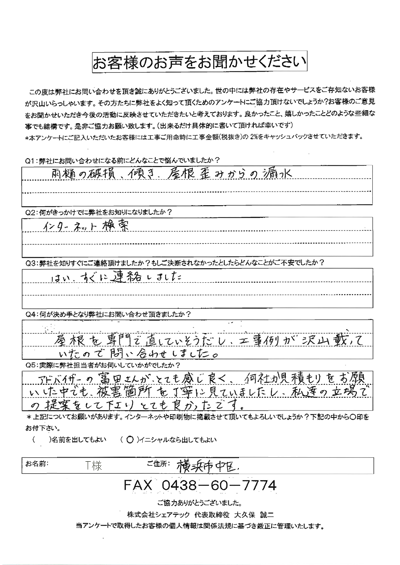 お客様のお声をお聞かせください
この度は弊社にお問い合わせを頂き誠にありがとうございました。世の中には弊社の存在やサービスをご存知ないお客様
が沢山いらっしゃいます。その方たちに弊社をよく知って頂くためのアンケートにご協力頂けないでしょうか?お客様のご意見
をお聞かせいただき今後の活動に反映させていただきたいと考えております。良かったこと、嬉しかったことどのような些細な
事でも結構です。是非ご協力お願い致します。(出来るだけ具体的に書いて頂ければ幸いです)
*本アンケートにご記入いただいたお客様には工事ご用命時に工事金額(税抜き)の2%をキャッシュバックさせていただきます。
Q1:弊社にお問い合わせになる前にどんなことで悩んでいましたか?
雨樋の破損、傾き、屋根歪みからの漏水
Q2:何がきっかけでに弊社をお知りになりましたか?
インターネット検索
Q3:弊社を知りすぐにご連絡頂けましたか?もしご決断されなかったとしたらどんなことがご不安でしたか?
はい、すぐに連絡しました
Q4:何が決め手となり弊社にお問い合わせ頂きましたか?
屋根を専門で直していそうだし、工事例が沢山載って
いたので問い合わせしました。
Q5:実際に弊社担当者がお伺いしていかがでしたか?
アドバイザーの富田さんが、とても感じ良く、何社か見積もりをお願
いした中でも、被害箇所を丁寧に見ていましたし、私達の立場で
の提案をして下さりとても良かったです。
*上記についてお願いがあります。インターネットや印刷物に掲載させて頂いてもよろしいでしょうか?下記の中から〇印を
お付け下さい。
( )名前を出してもよい (〇)イニシャルなら出してもよい
お名前: T様 ご住所: 横浜市中区
FAX 0438-60-7774
ご協力ありがとうございました。
株式会社シェアテック 代表取締役 大久保 誠二
当アンケートで取得したお客様の個人情報は関係法規に基づき厳正に管理いたします。